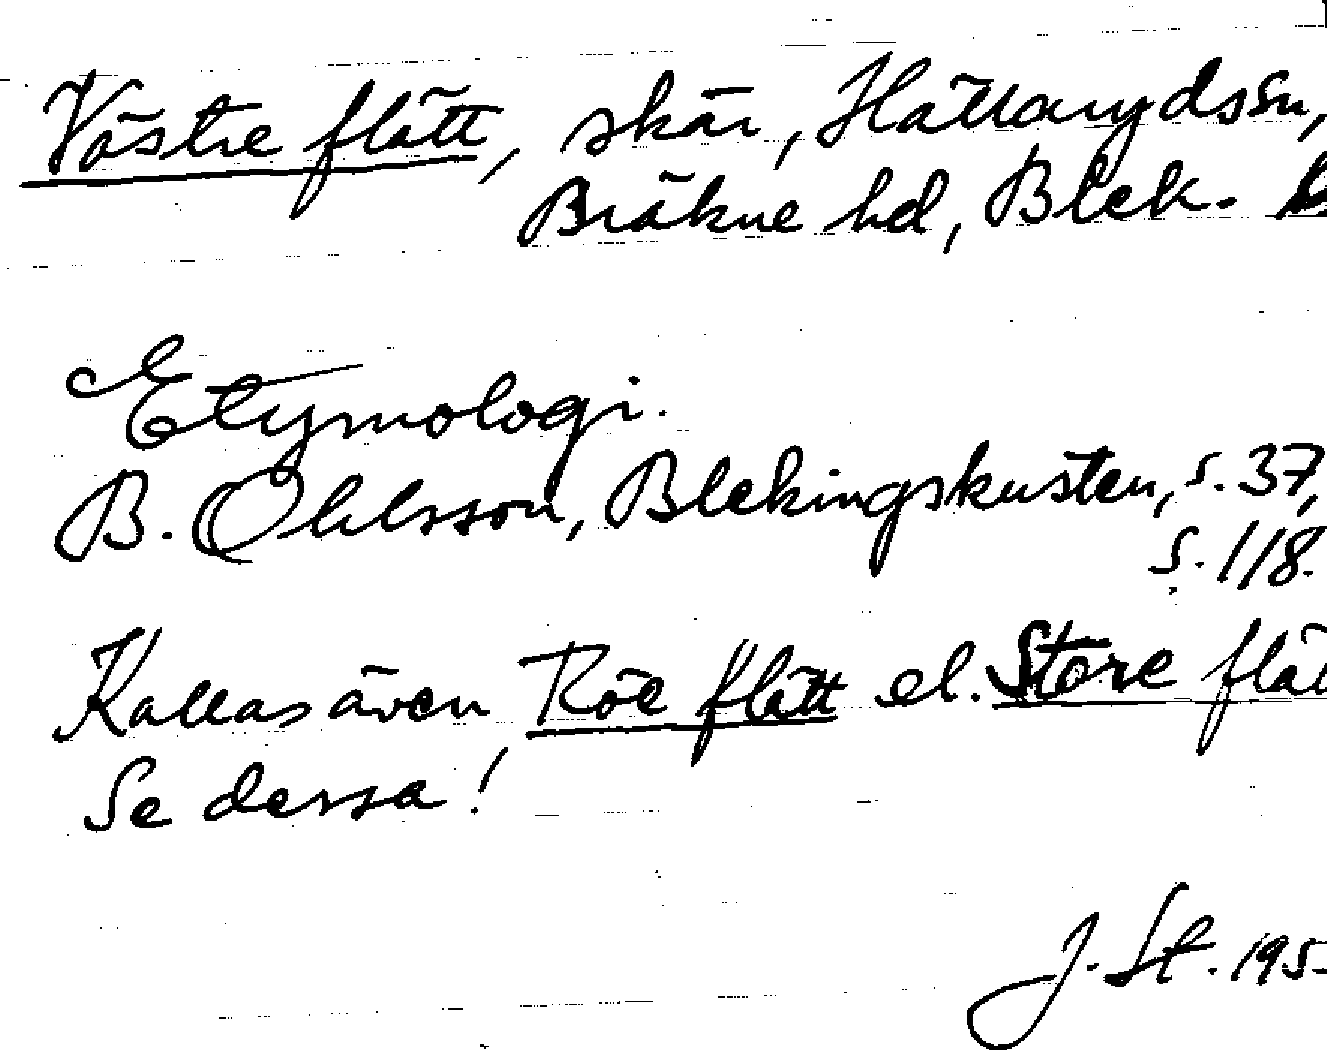 Västre flätt, skär, Hällarydssn,
Bräkne hd, Blek.
Etymologi.
B. Ohlsson, Blekingskusten, s. 37,
s. 118.
Kallas även Röe flätt el. Store flät
Se dessa!
J. St. 195